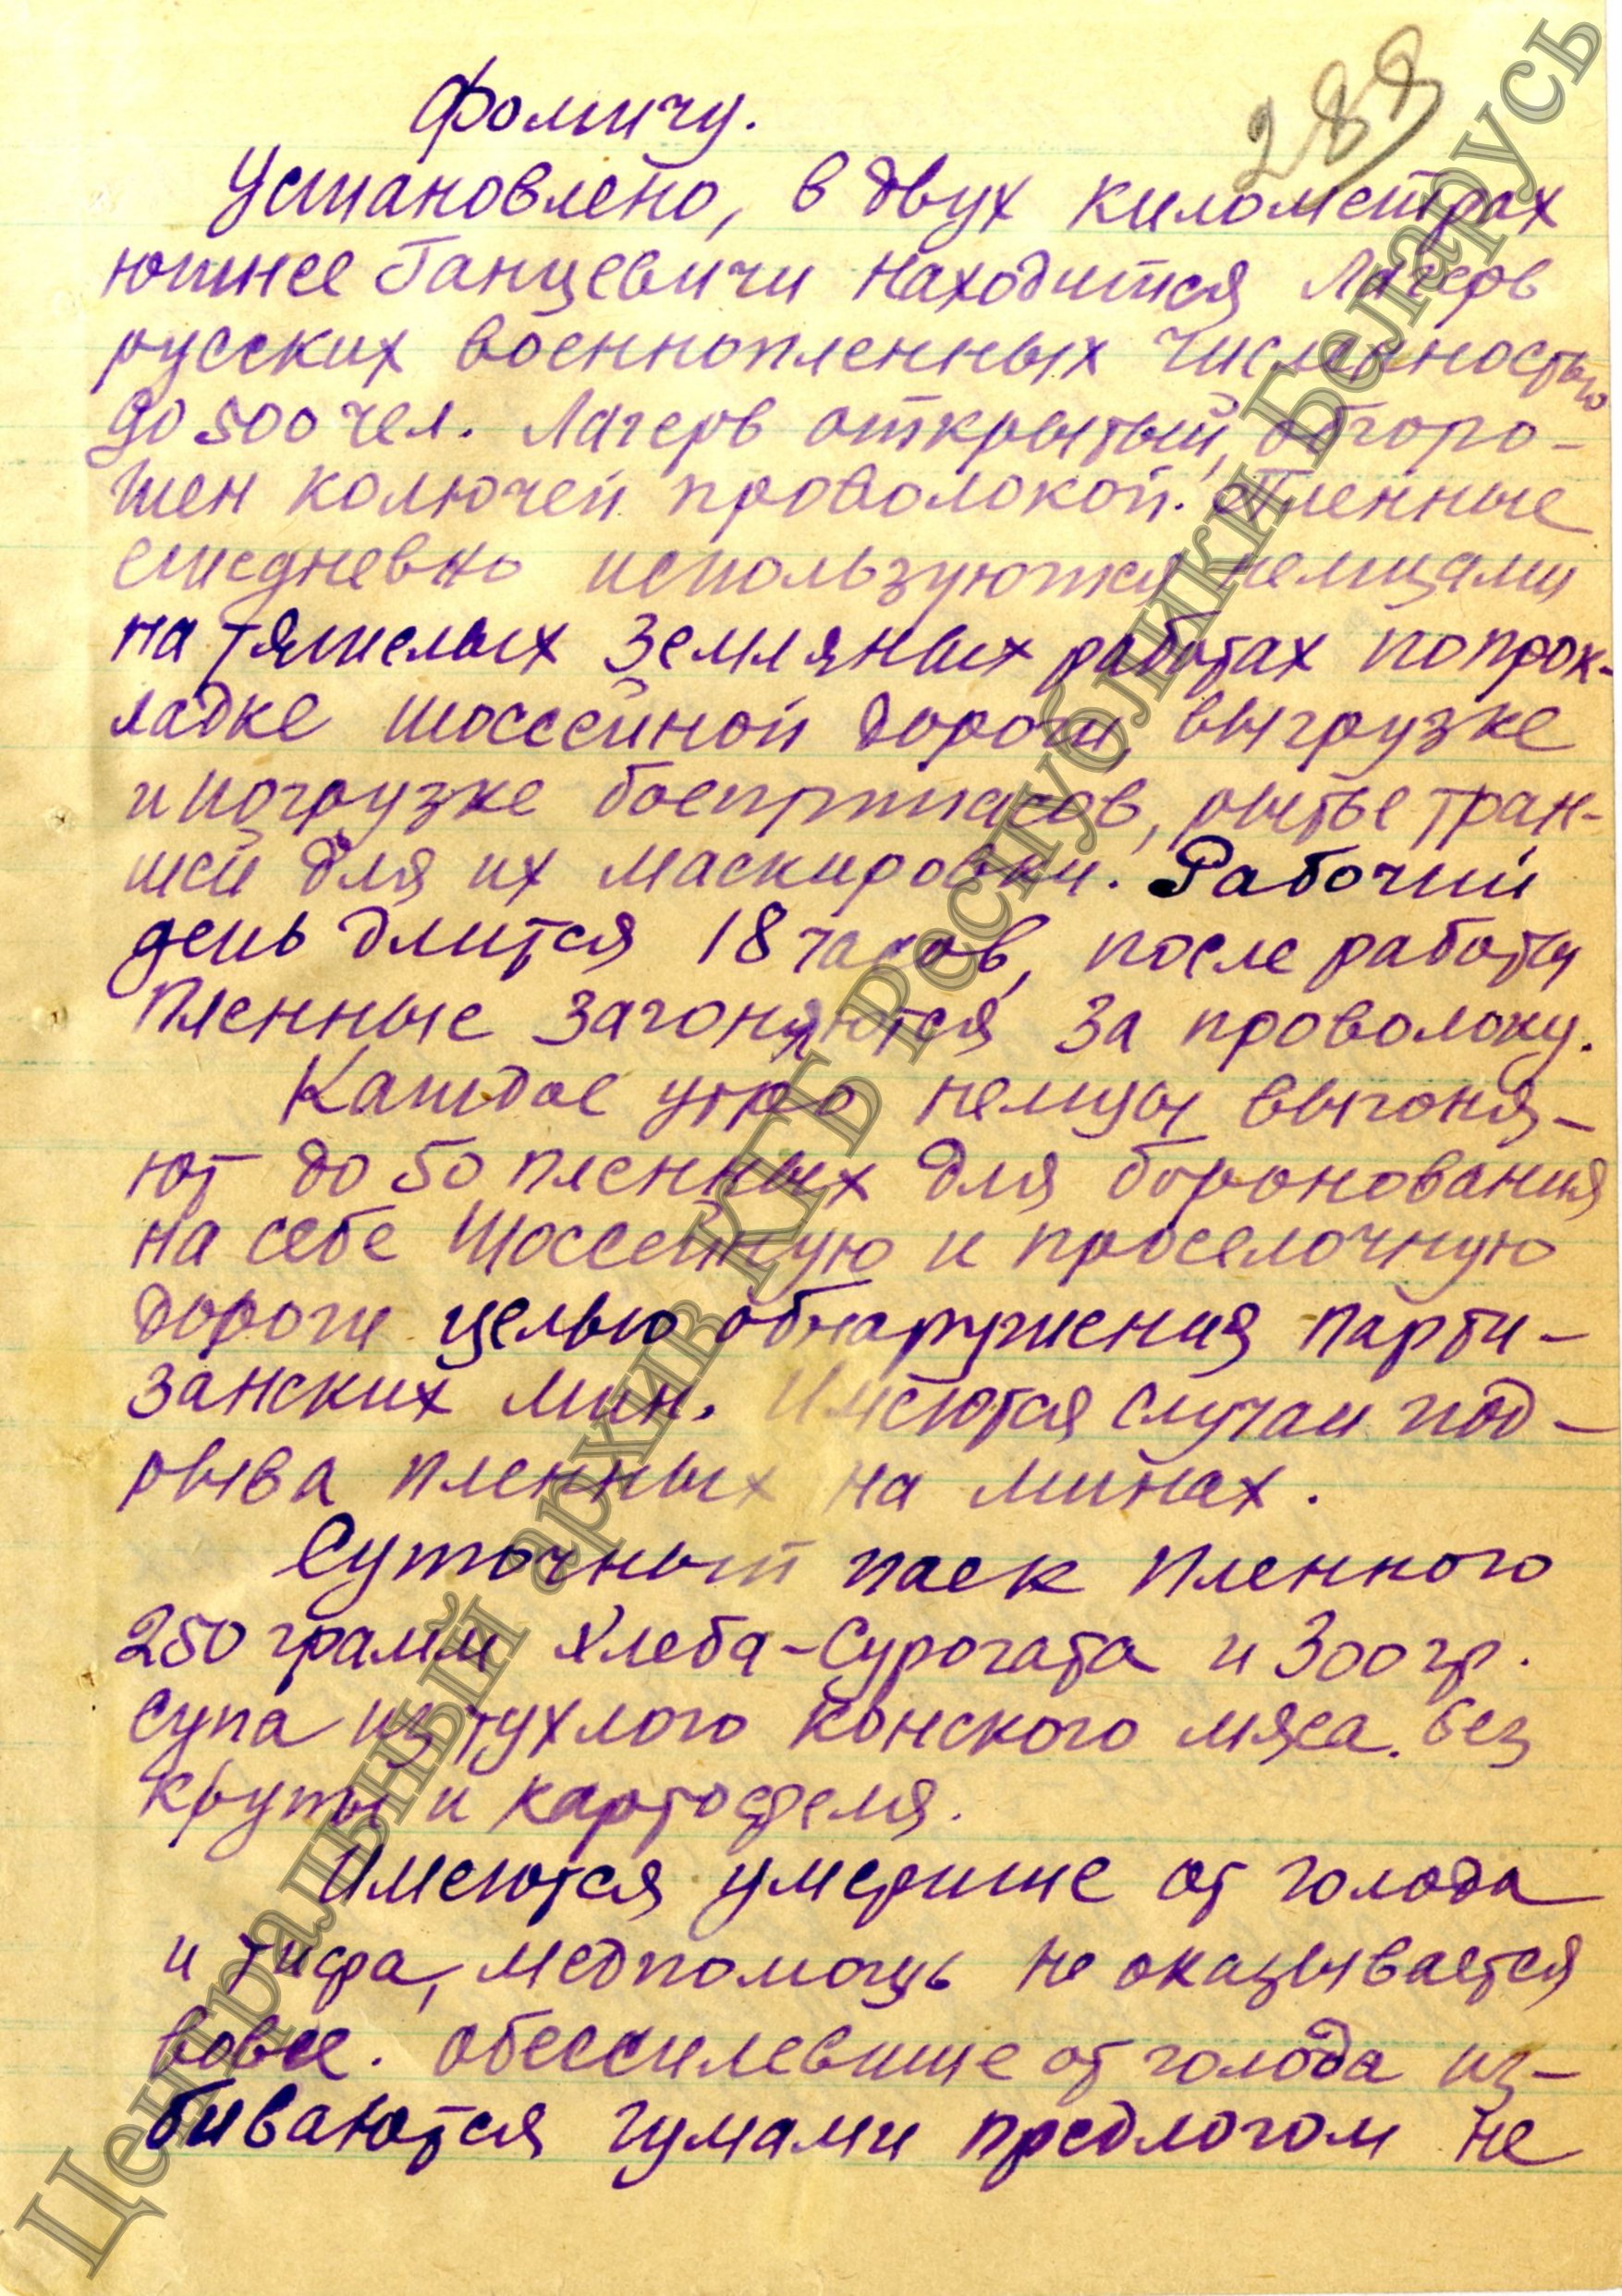 288
Фомичу.
Установлено, в двух километрах
южнее Ганцевичи находится Лагерь
русских военнопленных численностью
до 500 чел. Лагерь открытый, обгоро-
жен колючей проволокой. Пленные
ежедневно используются немцами
на тяжелых земляных работах по прок-
ладке шоссейной дороги, выгрузке
и погрузке боеприпасов, рытье тран-
шей для их маскировки. Рабочий
день длится 18 часов, после работы
пленные загоняются за проволоку.
Каждое утро немцы выгоня-
ют до 50 пленных для боронования
на себе шоссейную и проселочную
дороги целью обнаружения парти-
занских мин. Имеются случаи под-
рыва пленных на минах.
Суточный паек пленного
250 грамм хлеба-сурогата и 300 гр.
супа из тухлого конского мяса. без
крупы и картофеля.
Имеются умершие от голода
и тифа, медпомощь не оказывается
вовсе. обессилевшие от голода из-
биваются гумами предлогом не
Центральный архив КГБ Республики Беларусь